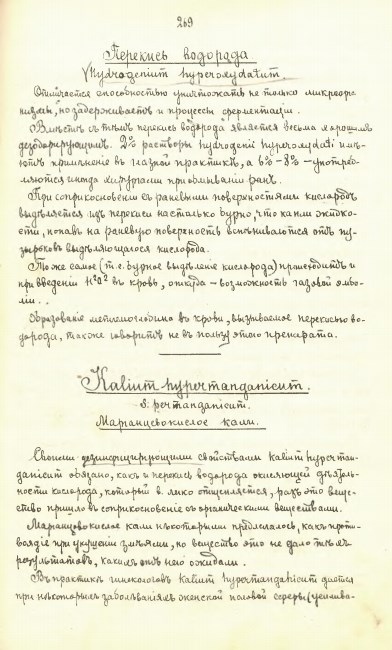 209
Перекись водорода
Hydrogenium hyperoxydatum.
Отличается способностью уничтожать не только микроорга-
низмы, но задерживаетъ и процессы ферментаціи.
Вмѣстѣ съ тѣмъ перекись водорода является весьма хорошимъ
дезодорирующимъ. 2% растворы hydrogenii hyperoxydati имѣ-
ютъ примѣненіе въ глазной практикѣ, а 6%-8% - употреб-
ляются иногда хирургами при обмываніи ранъ.
При соприкосновеніи съ раневыми поверхностями кислородъ
выдѣляется изъ перекиси настолько бурно, что капли жидко-
сти, попавъ на раневую поверхность вспѣниваются отъ пу-
зырьковъ выдѣляющагося кислорода.
Тоже самое (т.е. бурное выдѣленіе кислорода) происходитъ и
при введеніи H²O² въ кровь, откуда - возможность газовой эмбо-
ліи..
Образованіе метгемоглобина въ крови, вызываемое перекисью во-
дорода, также говоритъ не въ пользу этого препарата.
Kalium hypermanganicum.
s. permanganicum.
Марганцевокислое кали.
Своими дезинфицирующими свойствами Kalium hyperman-
ganicum обязано, какъ и перекись водорода окисляющей дѣятель-
ности кислорода, который легко отщепляется, разъ это веще-
ство пришло въ соприкосновеніе съ органическими веществами.
Марганцовокислое кали нѣкоторыми предлагалось, какъ проти-
воядіе при укушеніи змѣями, но вещество это не дало тѣхъ
результатовъ, какихъ отъ него ожидали.
Въ практикѣ гинекологовъ Kalium hypermanganicum дается
при нѣкоторыхъ заболѣваніяхъ женской половой сферы (усилива-